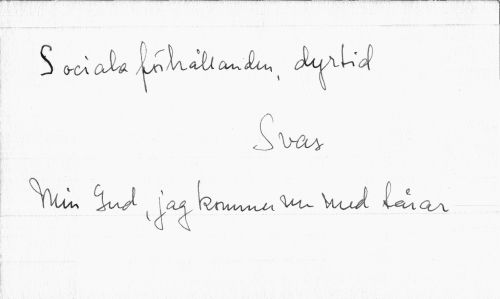 Sociala förhållanden, dyrtid
Svas
Min Gud, jag kommer nu med tårar